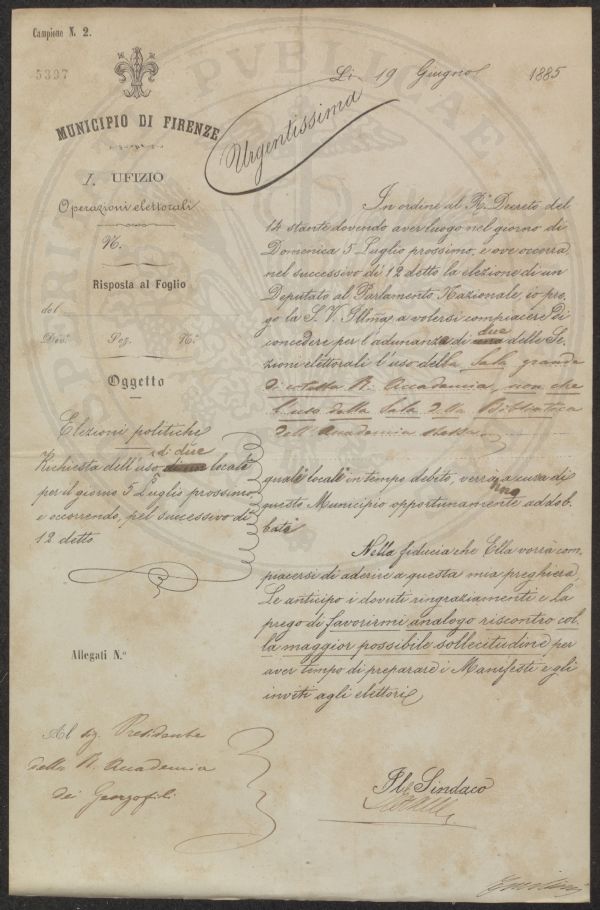 Campione N. 2.
5397
MUNICIPIO DI FIRENZE
I. UFIZIO
Operazioni elettorali
N.
Risposta al Foglio
del
Div.e Sez. N.o
Oggetto
Elezioni politiche
di due
Richiesta dell'uso di un locale
per il giorno 5 Luglio prossimo,
e occorrendo, pel successivo dì
12 detto
Allegati N.o
Al Sig. Presidente
della R. Accademia
dei Georgofili
Lì 19 Giugno 1885
Urgentissima
In ordine al R. Decreto del
14 stante dovendo aver luogo nel giorno di
Domenica 5 Luglio prossimo, e ove occorra,
nel successivo dì 12 detto la elezione di un
Deputato al Parlamento Nazionale, io pre-
go la S. V. Illma a volersi compiacere di
due
concedere per l'adunanza di una delle Se-
zione elettorali l'uso della Sala grande
di cotesta R. Accademia, non che
l'uso della Sala della Biblioteca
dell'Accademia stessa
quali locali in tempo debito, verranno a cura di
questo Municipio opportunamente addob-
bati
Nella fiducia che Ella vorrà com-
piacersi di aderire a questa mia preghiera,
Le anticipo i dovuti ringraziamenti e la
prego di favorirmi analogo riscontro col-
la maggior possibile sollecitudine per
aver tempo di preparare i Manifesti e gli
inviti agli elettori
Il Sindaco